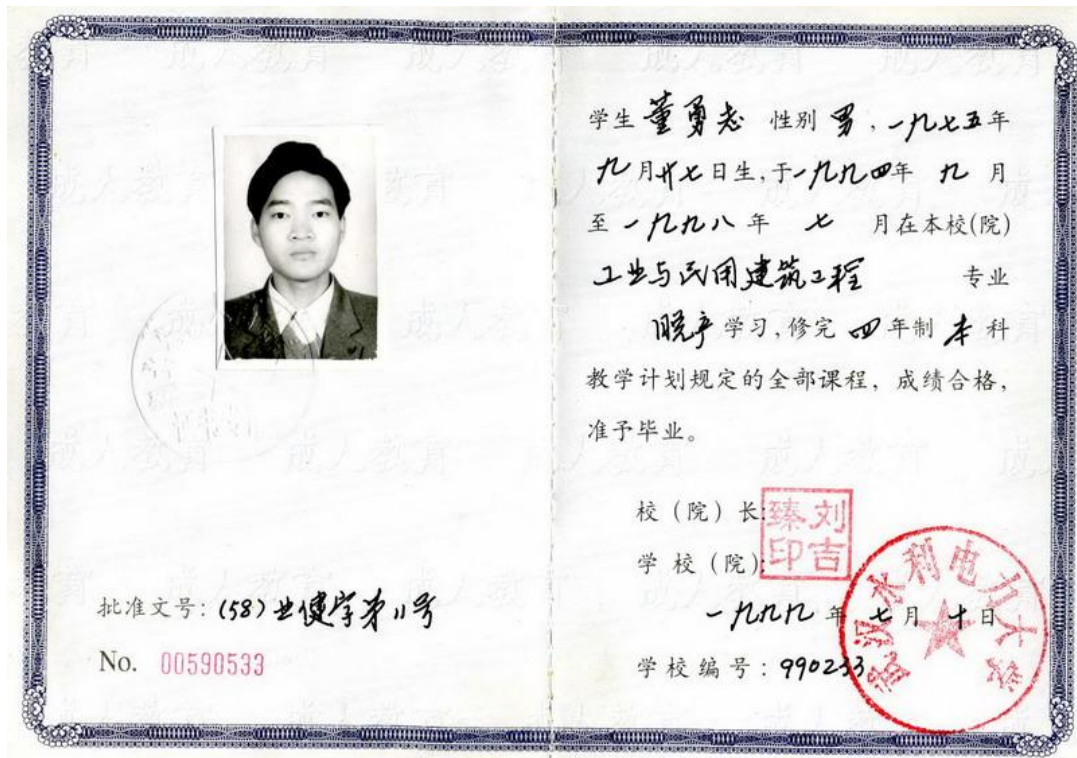 批准文号：(58)业健学第11号
No. 00590533
学生 董勇志 性别 男，一九七五年
九月廿七日生，于一九九四年 九 月
至一九九八年 七 月在本校(院)
工业与民用建筑工程 专业
脱产学习，修完 四 年制 本 科
教学计划规定的全部课程，成绩合格，
准予毕业。
校（院）长：
刘吉臻印
学 校（院）：
一九九九年 七月 十日
学校编号：990233
武汉水利电力大学
成人教育